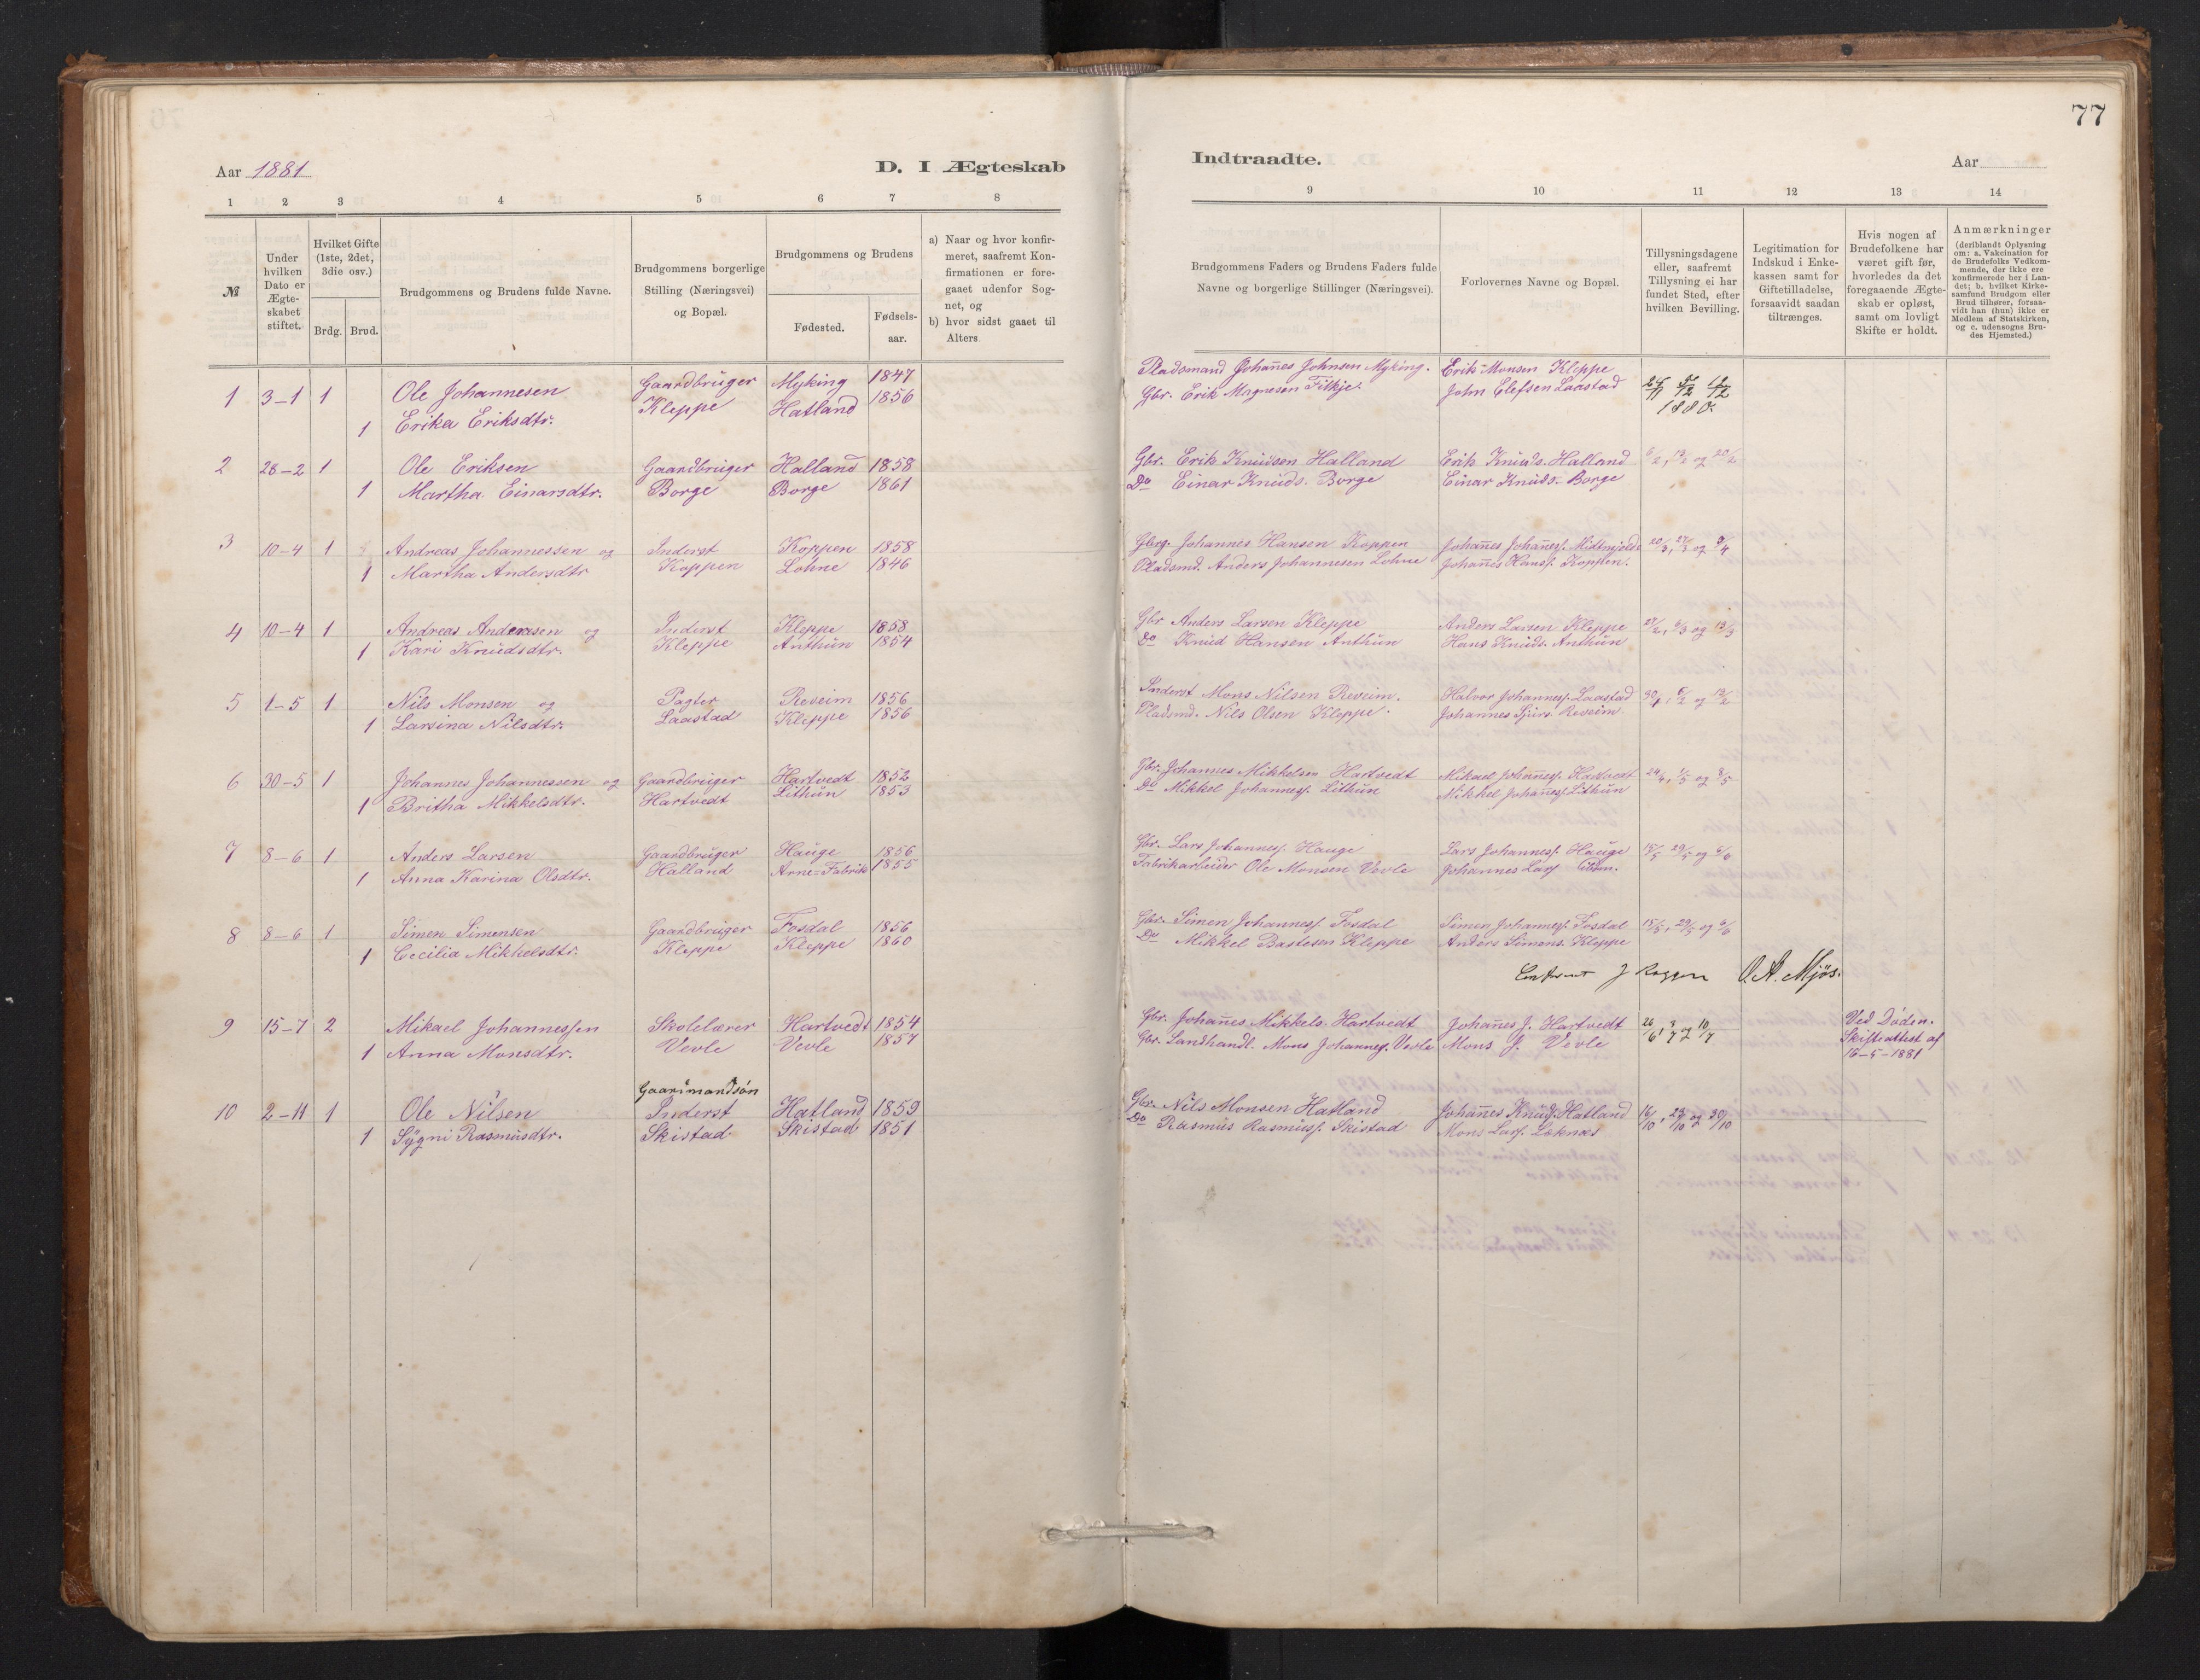 77
Aar 1881
D. I Ægteskab
Indtraadte.
Aar
1 2 3 4 5 6 7 8
9 10 11 12 13 14
№
Under hvilken Dato er Ægteskabet stiftet.
Hvilket Gifte (1ste, 2det, 3die osv.)
Brdg. Brud.
Brudgommens og Brudens fulde Navne.
Brudgommens borgerlige Stilling (Næringsvei) og Bopæl.
Brudgommens og Brudens
Fødested.
Fødsels-aar.
a) Naar og hvor konfirmeret, saafremt Konfirmationen er foregaaet udenfor Sognet, og
b) hvor sidst gaaet til Alters.
Brudgommens Faders og Brudens Faders fulde Navne og borgerlige Stillinger (Næringsvei).
Forlovernes Navne og Bopæl.
Tillysningsdagene eller, saafremt Tillysning ei har fundet Sted, efter hvilken Bevilling.
Legitimation for Indskud i Enkekassen samt for Giftetilladelse, forsaavidt saadan tiltrænges.
Hvis nogen af Brudefolkene har været gift før, hvorledes da det foregaaende Ægteskab er opløst, samt om lovligt Skifte er holdt.
Anmærkninger
(deriblandt Oplysning om: a. Vakcination for de Brudefolks Vedkommende, der ikke ere konfirmerede her i Landet; b. hvilket Kirkesamfund Brudgom eller Brud tilhører, forsaavidt han (hun) ikke er Medlem af Statskirken, og c. udensogns Brudes Hjemsted.)
1 3-1 1 Ole Johannesen Gaardbruger Myking 1847 Pladsmand Johañes Johnsen Myking. Erik Monsen Kleppe
1 Erika Eriksdtr. Kleppe Hatland 1856 Gbr. Erik Magnesen Fitkje. John Elefsen Laastad
1880.
2 28-2 1 Ole Eriksen Gaardbruger Halland 1858 Gbr. Erik Knudsen Halland Erik Knuds. Halland 6/2, 13/2 og 20/2
1 Martha Einarsdtr. Borge Borge 1861 Do Einar Knuds. Borge Einar Knuds. Borge
3 10-4 1 Andreas Johannessen og Inderst Koppen 1858 Gbrg. Johannes Hansen Koppen Johañes Johañess. Midtmjelde 20/3, 27/3 og 3/4
1 Martha Andersdtr Koppen Lohne 1846 Pladsmd. Anders Johannesen Lohne Johañes Hanss. Koppen.
4 10-4 1 Andreas Andersen og Inderst Kleppe 1858 Gbr Anders Larsen Kleppe Anders Larsen Kleppe 27/2, 6/3 og 13/3
1 Kari Knudsdtr. Kleppe Anthun 1854 Do Knud Hansen Anthun Hans Knuds. Anthun
5 1-5 1 Nils Monsen og Pagter Reveim 1856 Inderst Mons Nilsen Reveim. Halvor Johanness. Laastad
1 Larsina Nilsdtr. Laastad Kleppe 1856 Pladsmd. Nils Olsen Kleppe. Johannes Sjurs. Reveim
6 30-5 1 Johannes Johannessen og Gaardbruger Hartvedt 1852 Gbr. Johannes Mikkelsen Hartvedt Mikael Johañess. Hartvedt 24/4, 1/5 og 8/5
1 Britha Mikkelsdtr. Hartvedt Lithun 1853 Do Mikkel Johanness. Lithun Mikkel Johañess. Lithun
7 8-6 1 Anders Larsen Gaardbruger Hauge 1856 Gbr. Lars Johanness. Hauge Lars Johanness. Hauge 15/5, 29/5 og 6/6
1 Anna Karina Olsdtr. Halland Arne-Fabrik 1855 Fabrikarbeider Ole Monsen Vevle Johannes Lars.
8 8-6 1 Simen Simensen Gaardbruger Fosdal 1856 Gbr. Simen Johanness. Fosdal Simen Johanness. Fosdal 15/5, 29/5 og 6/6
1 Cecilia Mikkelsdtr. Kleppe Kleppe 1860 Do Mikkel Bastesen Kleppe Anders Simens. Kleppe
O. A. Mjös.
9 15-7 2 Mikael Johannessen Skolelærer Hartvedt 1854 Gbr. Johañes Mikkels. Hartvedt Johañes J. Hartvedt 26/6, 3/7 og 10/7 Ved Döden.
1 Anna Monsdtr. Vevle Vevle 1857 Gbr. Landhandl. Mons Johanness. Vevle Mons J. Vevle Skifteattest af
16-5-1881
Gaardmandsøn
10 2-11 1 Ole Nilsen Inderst Hatland 1859 Gbr. Nils Monsen Hatland Johañes Knuds. Hatland 16/10, 23/10 og 30/10
1 Sygni Rasmusdtr. Skistad Skistad 1851 Do Rasmus Rasmuss. Skistad Mons Lars. Løknes